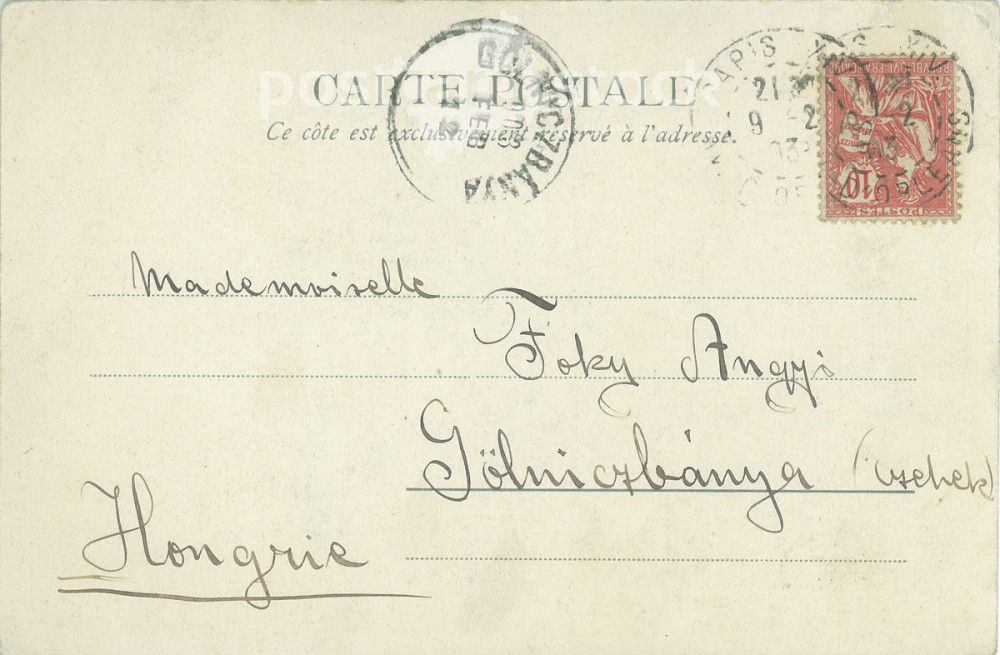 CARTE POSTALE
Ce côte est exclusivement réservé à l'adresse.
GÖLNICZBÁNYA
903
FEB
12
PARIS
21
9 2
03
REPUBLIQUE FRANÇAISE
10
POSTES
Mademoiselle
Foky Angyi
Gölniczbánya
Hongrie